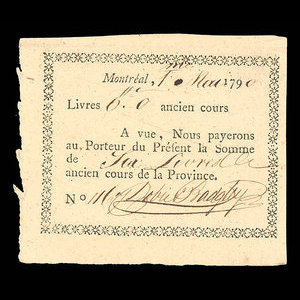 Montréal, 1er Mai 1790
Livres 6.0 ancien cours
A vue, Nous payerons
au Porteur du Présent la Somme
de Six Livres
ancien cours de la Province.
No Dobie & Badgley